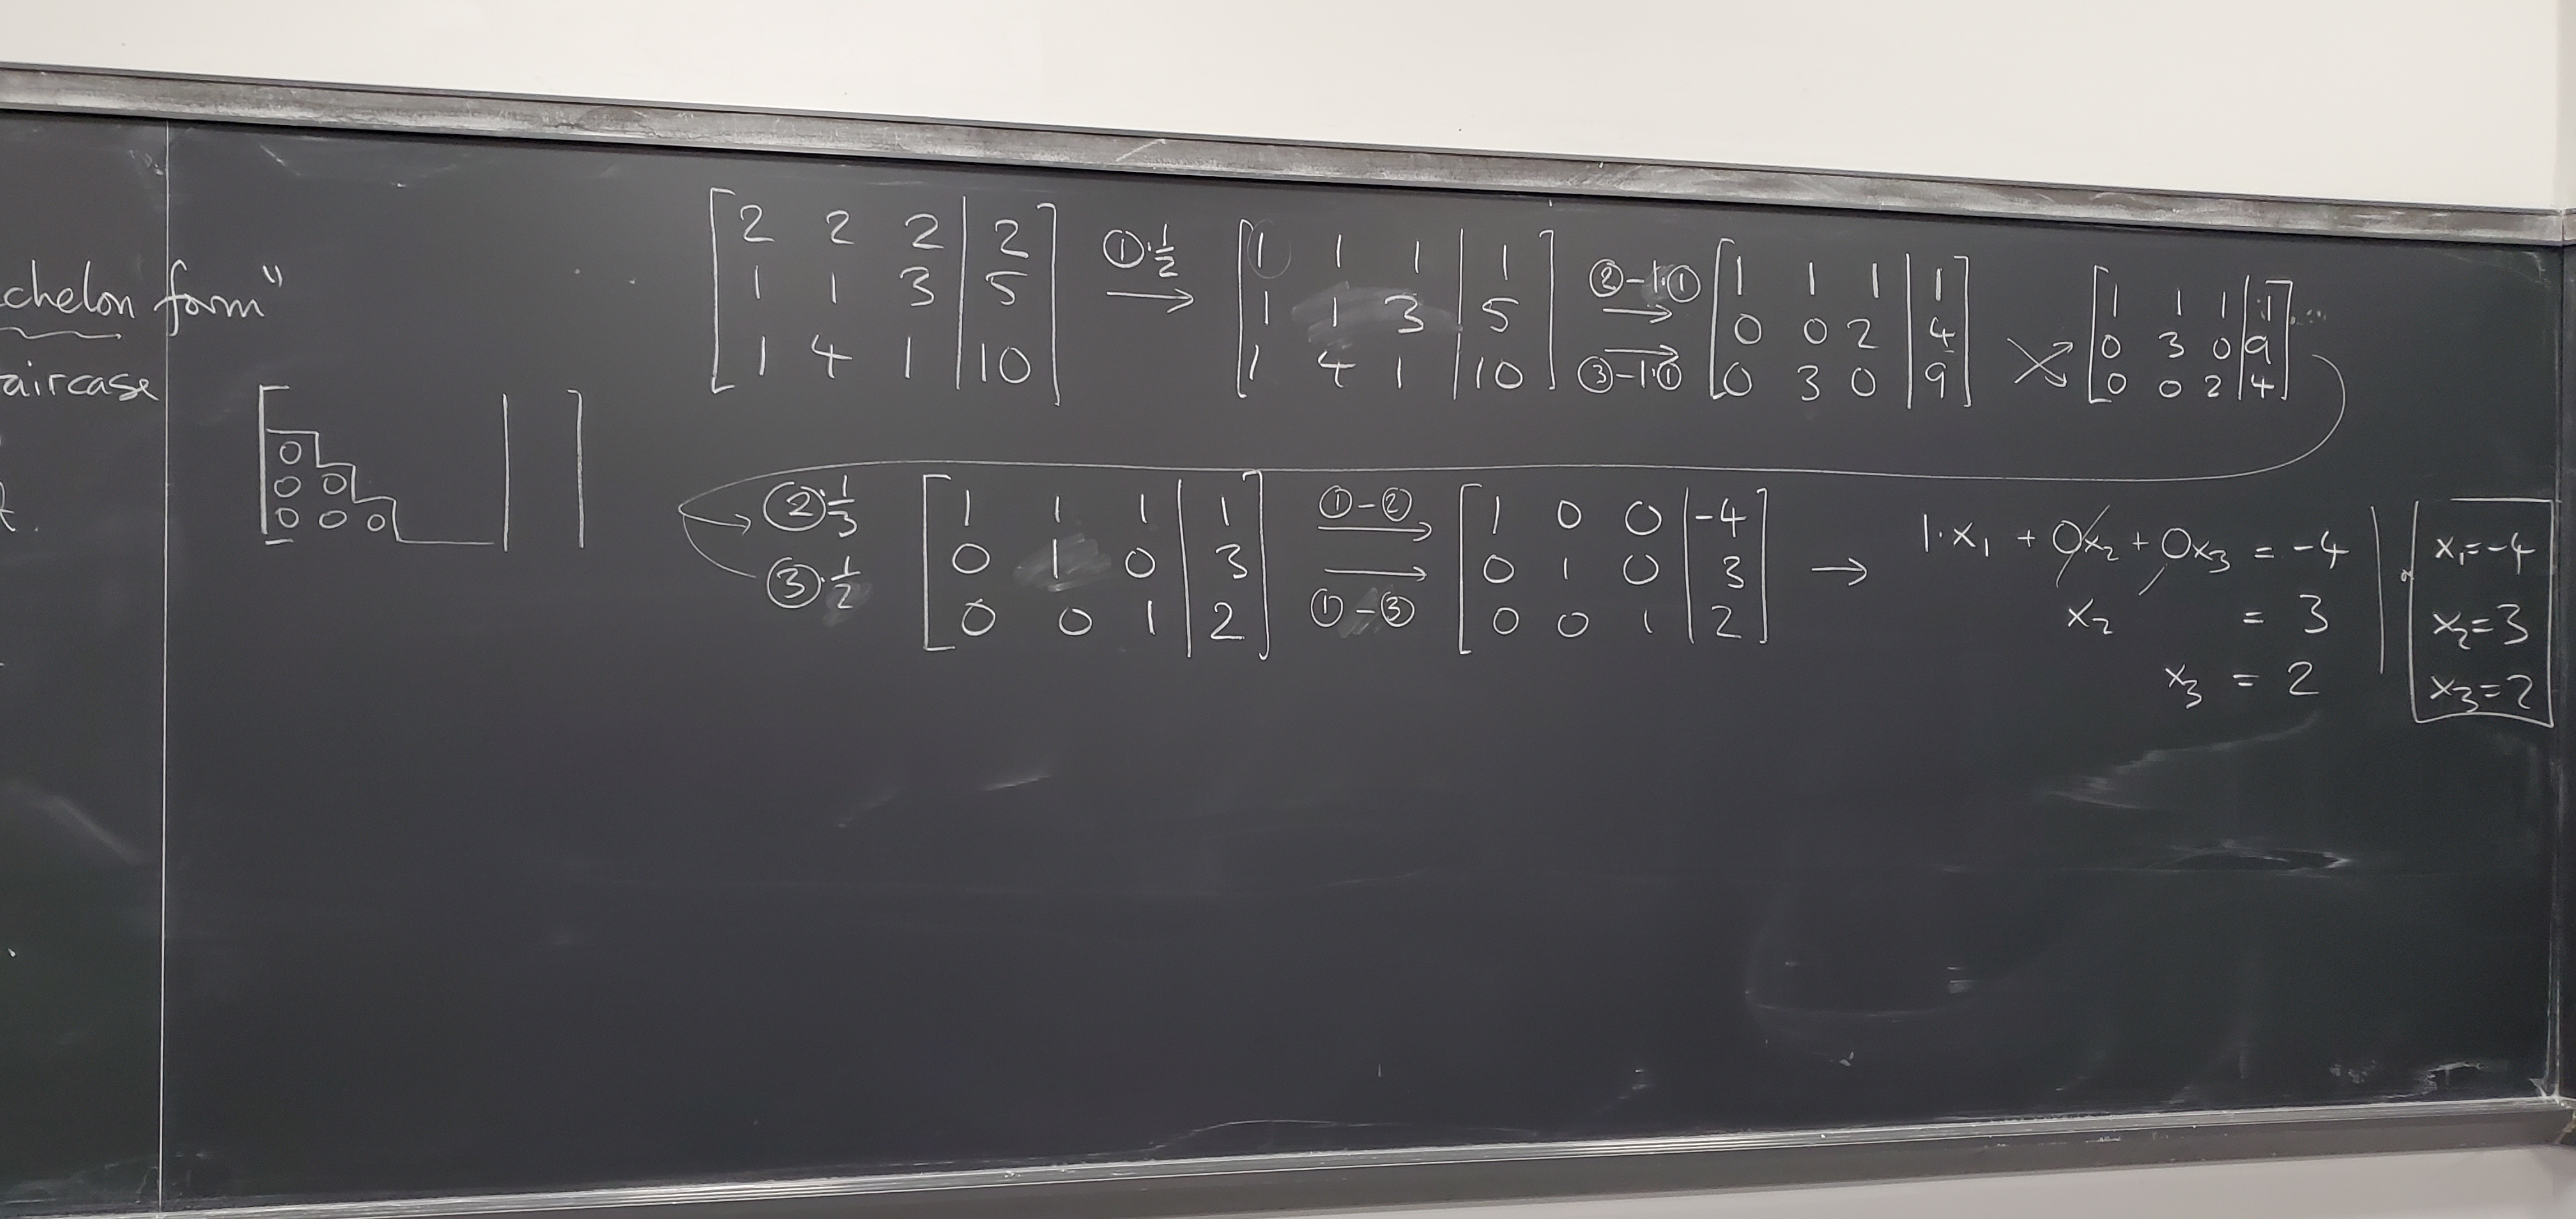 chelon form"
aircase
t.
[ 0
0 0
0 0 0 | ]
[ 2 2 2 | 2
1 1 3 | 5
1 4 1 | 10 ]
①·1/2
→
[ 1 1 1 | 1
1 1 3 | 5
1 4 1 | 10 ]
②-1·①
→
→
③-1·①
[ 1 1 1 | 1
0 0 2 | 4
0 3 0 | 9 ]
[ 1 1 1 | 1
0 3 0 | 9
0 0 2 | 4 ]
②·1/3
③·1/2
[ 1 1 1 | 1
0 1 0 | 3
0 0 1 | 2 ]
①-②
→
→
①-③
[ 1 0 0 | -4
0 1 0 | 3
0 0 1 | 2 ]
→
1·x₁ + 0x₂ + 0x₃ = -4
x₂ = 3
x₃ = 2
x₁=-4
x₂=3
x₃=2